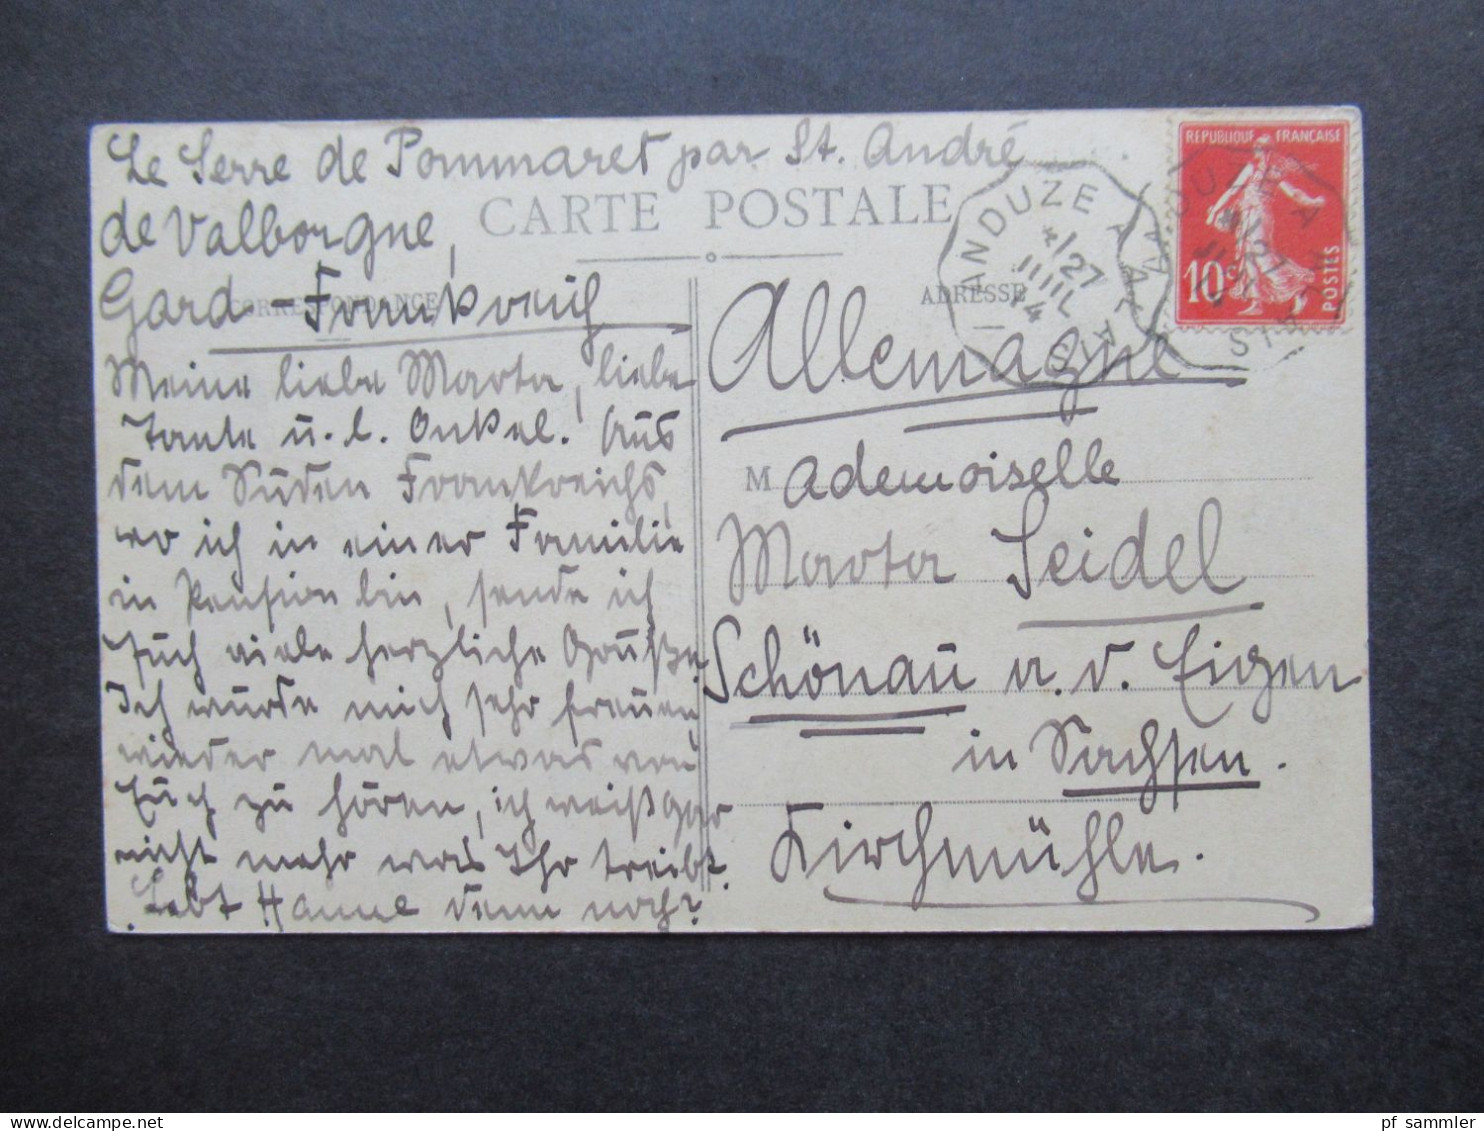 Le Serre de Pommaret par St. André
de Valborgne,
Gard - Frankreich
CARTE POSTALE
CORRESPONDANCE
ADRESSE
Meine liebe Marta, liebe
Tante u. l. Onkel. Aus
dem Süden Frankreichs,
wo ich in einer Familie
in Pension bin, sende ich
Euch viele herzliche Grüße.
Ich würde mich sehr freuen
wieder mal etwas von
Euch zu hören, ich weiß gar
nicht mehr was Ihr treibt.
Lebt Hanne denn noch?
Allemagne
Mademoiselle
Marta Seidel
Schönau a. d. Eigen
in Sachsen.
Kirchmühle.
ANDUZE A ALAIS
*/27
JUIL
14
REPUBLIQUE FRANÇAISE
10c
POSTES
www.delcampe.net
pf_sammler